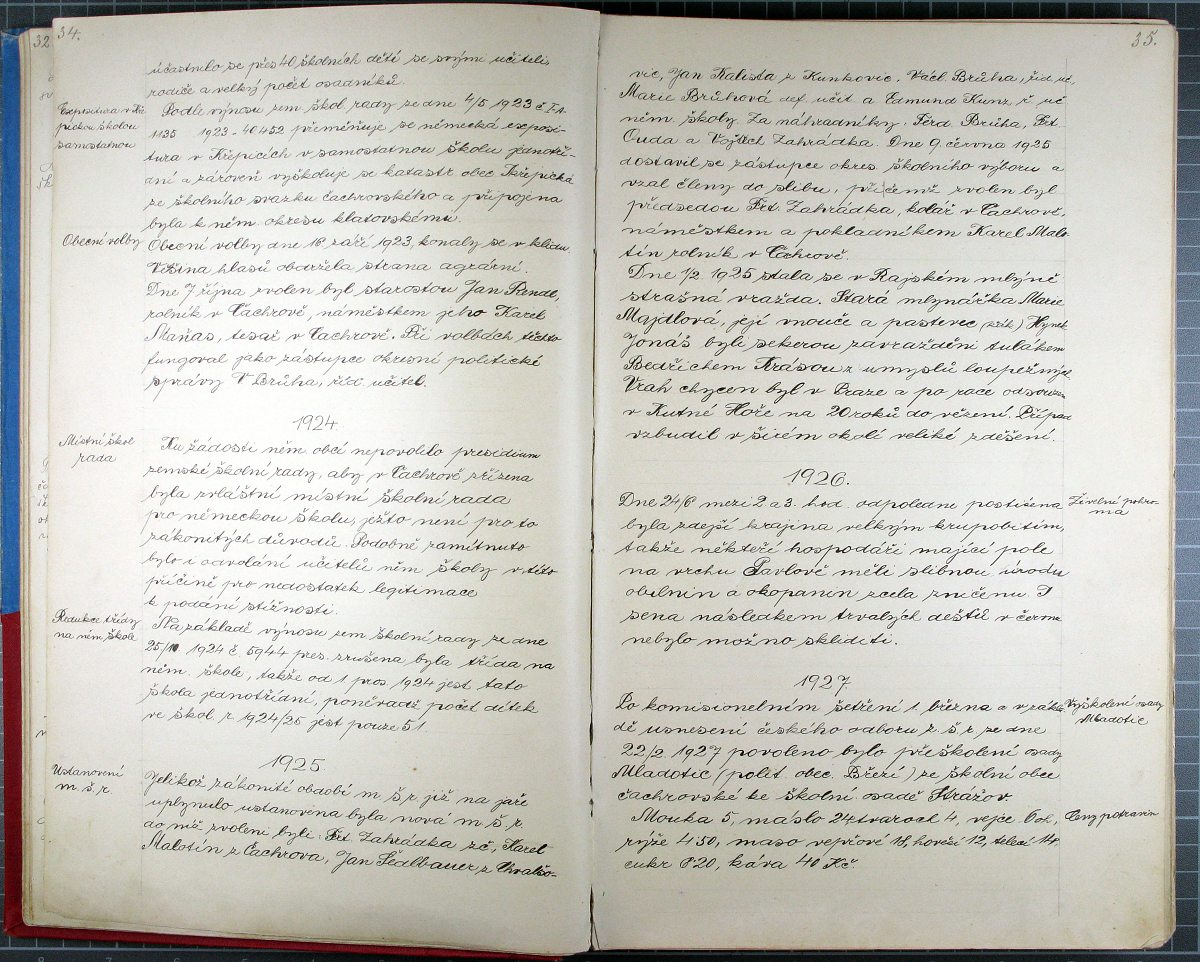 32 34.
účastnilo se přes 40 školních dětí se svými učiteli
rodiče a velký počet osadníků.
Expositura v Kře-
pickou školou
samostatnou
Podle výnosu zem. škol. rady ze dne 4/5 1923 č
1135 1923 - 40452 přeměňuje se německá exposi-
tura v Křepicích v samostatnou školu jednotří-
dní a zároveň vyškoluje se katastr obce Křepická
ze školního svazku čachrovského a připojena
byla k něm. okresu klatovskému.
Obecní volby
Obecní volby dne 16. září 1923, konaly se v klidu.
Většina hlasů obdržela strana agrární.
Dne 7 října zvolen byl starostou Jan Pandl,
rolník v Čachrově, náměstkem jeho Karel
Maňas, tesař v Čachrově. Při volbách těchto
fungoval jako zástupce okresní politické
správy V Brůha, říd. učitel.
1924.
Místní škol
rada
Ku žádosti něm. obcí nepovolilo presidium
zemské školní rady, aby v Čachrově zřízena
byla zvláštní místní školní rada
pro německou školu, ježto není pro to
zákonitých důvodů. Podobně zamítnuto
bylo i odvolání učitelů něm školy v této
příčině pro nedostatek legitimace
k podání stížnosti.
Redukce třídy
na něm. škole
Na základě výnosu zem školní rady ze dne
25/10 1924 č 5944 pres. zrušena byla třída na
něm. škole, takže od 1 pros. 1924 jest tato
škola jednotřídní, poněvadž počet dítek
ve škol. r. 1924/25 jest pouze 51
1925.
Ustanovení
m. š. r.
Jelikož zákonité období m š r. již na jaře
uplynulo ustanovena byla nová m š r.
do níž zvoleni byli: Frt. Zahrádka zč, Karel
Malotín z Čachrova, Jan Sedlbauer z Chvalšo-
35.
vic, Jan Kalista z Kunkovic. Václ. Brůha, říd. uč.,
Marie Brůhová def. učit a Edmund Kunz, ř. uč
něm. školy. Za náhradníky: Ferd. Brůha, Frt.
Duda a Vojtěch Zahrádka. Dne 9. června 1925
dostavil se zástupce okres školního výboru a
vzal členy do slibu, přičemž zvolen byl
předsedou Frt. Zahrádka, kolář v Čachrově,
náměstkem a pokladníkem Karel Malo-
tín rolník v Čachrově.
Dne 1/2 1925 stala se v Rajském mlýně
strašná vražda. Stará mlynářka Marie
Majdlová, její vnouče a pastevec Hynek
Jonáš byli sekerou zavražděni tulákem
Bedřichem Krásou z úmyslů loupežných.
Vrah chycen byl v Praze a po roce odsouzen
v Kutné Hoře na 20 roků do vězení. Případ
vzbudil v širém okolí veliké zděšení.
1926.
Živelní pohro-
ma
Dne 24/6 mezi 2 a 3. hod. odpoledne postižena
byla zdejší krajina velkým krupobitím,
takže někteří hospodáři mající pole
na vrchu Pavlově měli slibnou úrodu
obilnin a okopanin zcela zničenu. I
sena následkem trvalých deštů v červnu
nebylo možno skliditi.
1927.
Vyškolení osady
Mladotic
Po komisionelním šetření 1. března a v zákla-
dě usnesení českého odboru z. š. r. ze dne
22/2. 1927 povoleno bylo přeškolení osady
Mladotic (polit. obec. Březí) ze školní obce
čachrovské ke školní osadě Strážov.
Ceny potravin
Mouka 5, máslo 24 tvaroch 4, vejce 60h,
rýže 4·50, maso vepřové 18, hovězí 12, telecí 14,
cukr 6·20, káva 40 Kč.